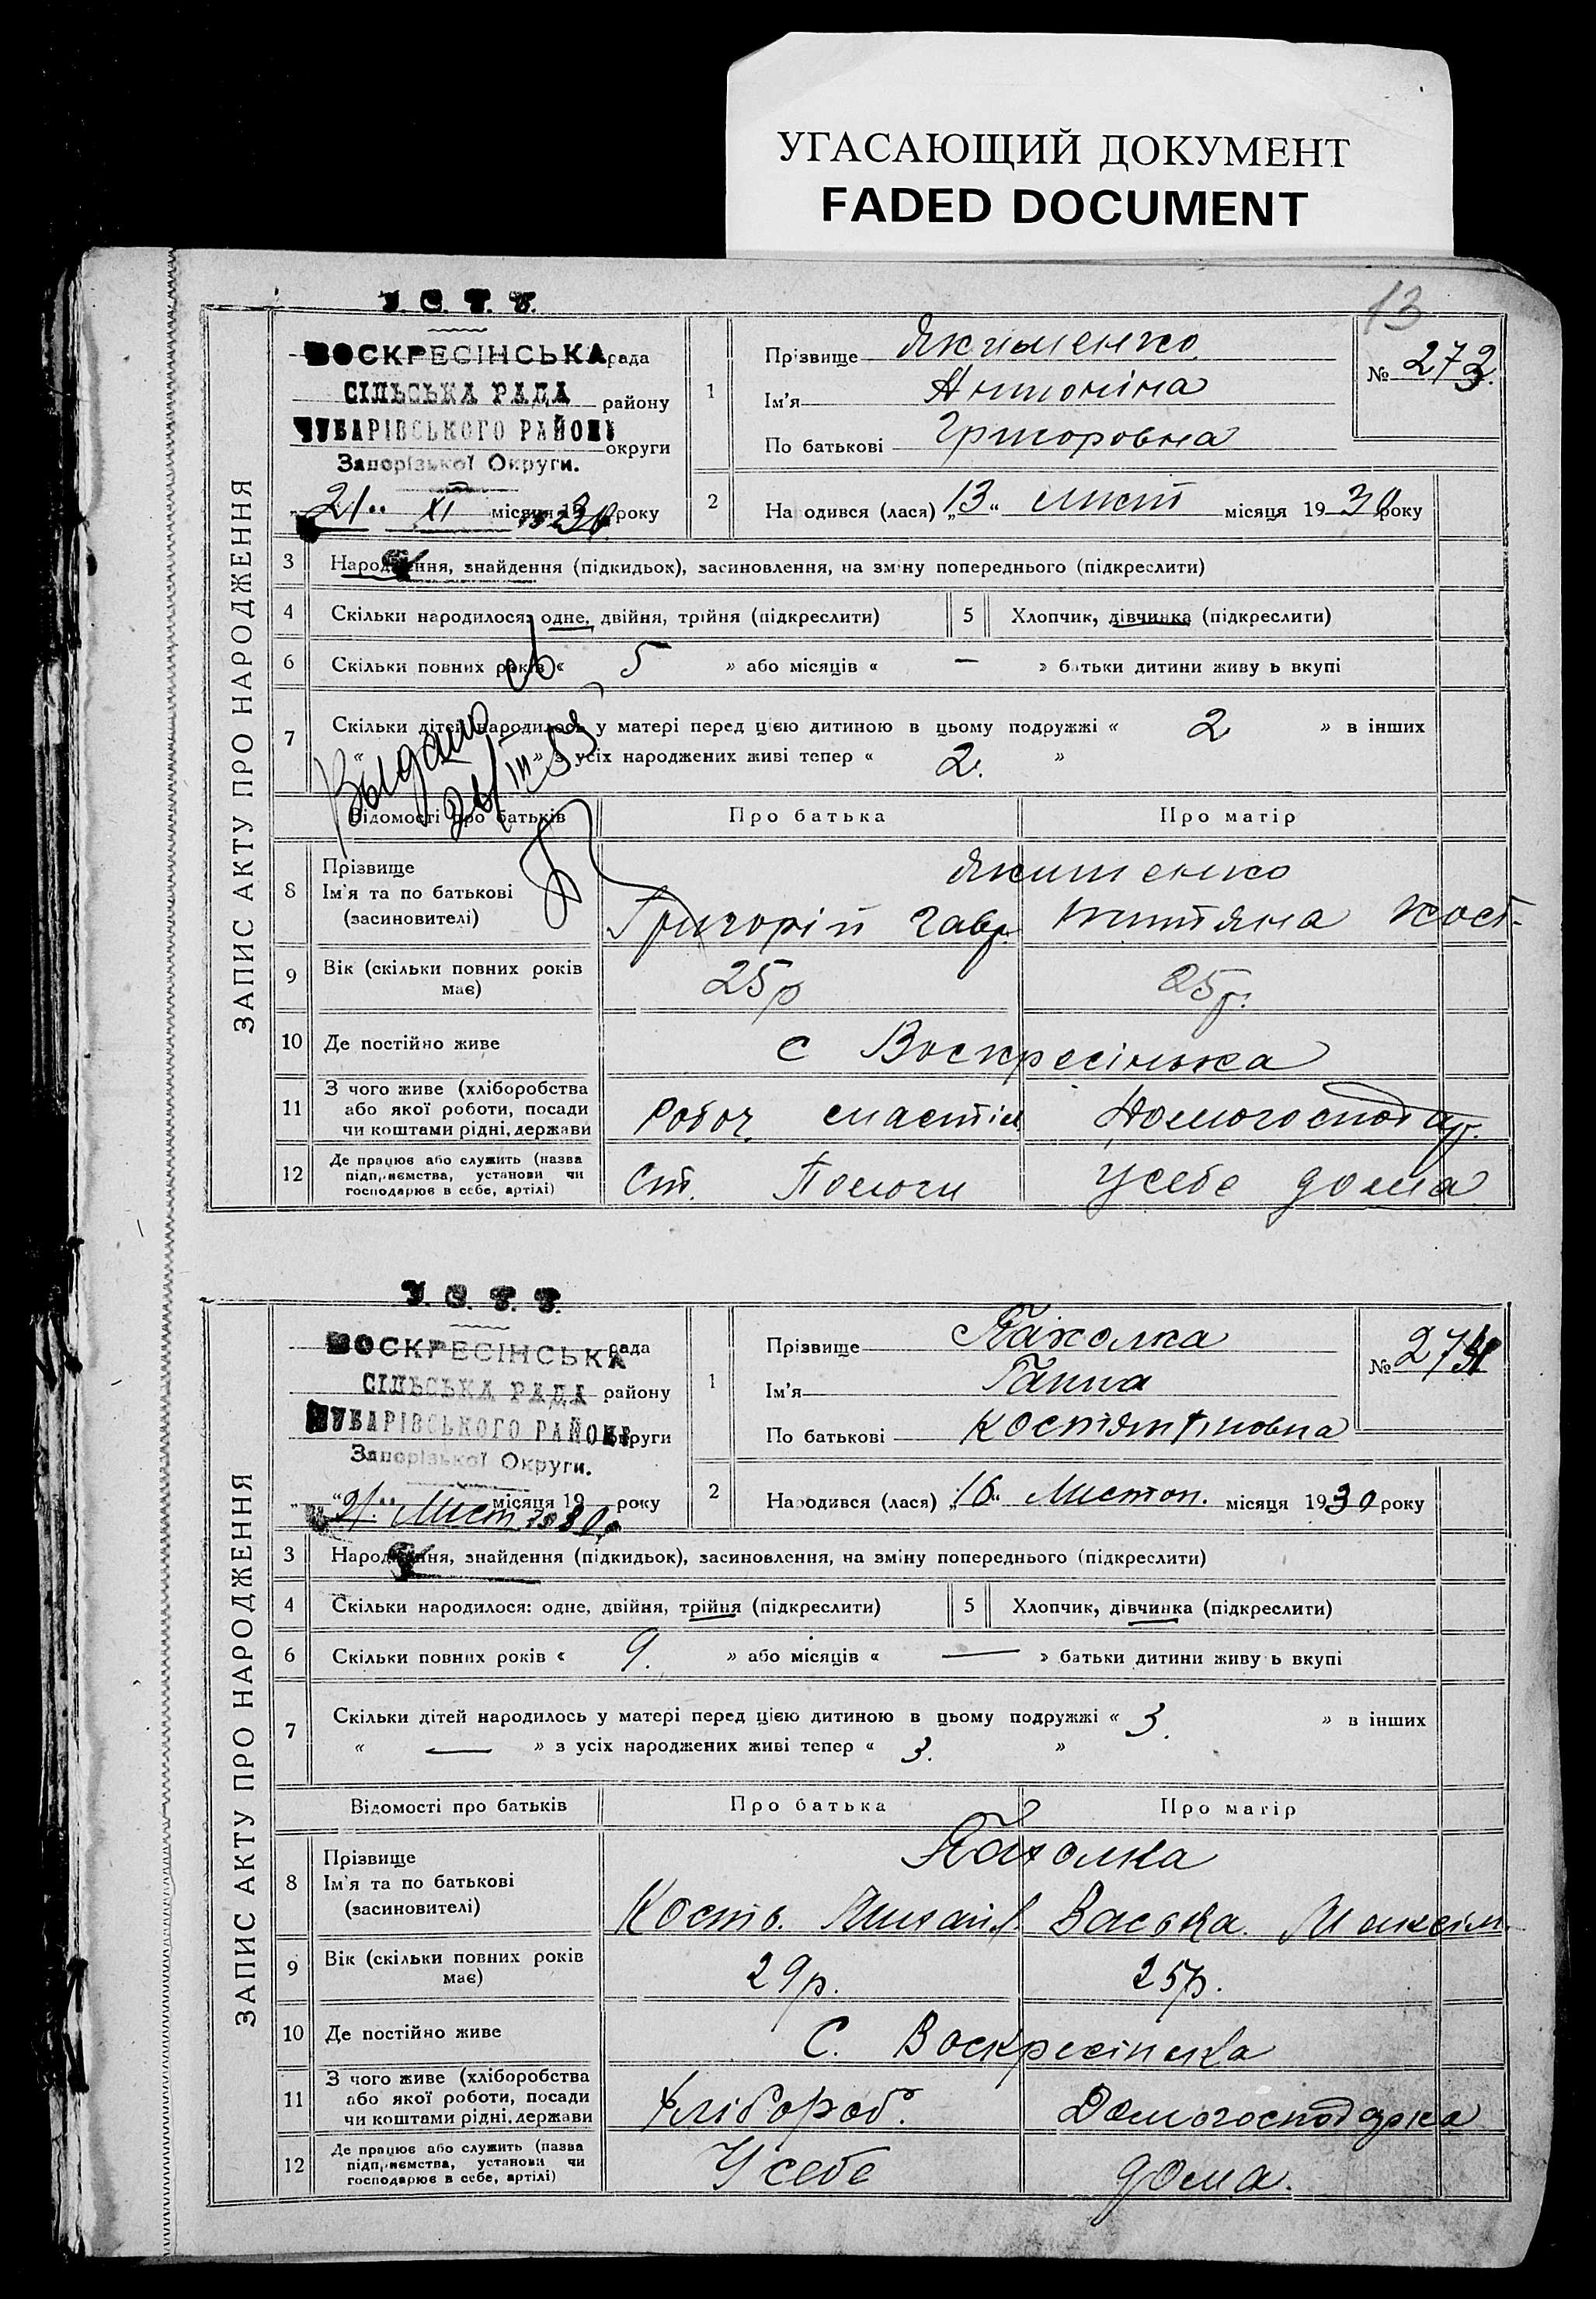 УГАСАЮЩИЙ ДОКУМЕНТ
FADED DOCUMENT
13
ЗАПИС АКТУ ПРО НАРОДЖЕННЯ
У. С. Р. Р.
ВОСКРЕСІНСЬКА рада
СІЛЬСЬКА РАДА району
ЧУБАРІВСЬКОГО РАЙОНУ
округи
Запорізької Округи.
„21“ XI місяця 1930 року
1 Прізвище Якименко
Ім'я Антоніна
По батькові Григоровна
№ 273.
2 На одився (лася) „13“ лист місяця 1930 року
3 Народження, знайдення (підкидьок), засиновлення, на зміну попереднього (підкреслити)
4 Скільки народилося: одне, двійня, трійня (підкреслити) 5 Хлопчик, дівчинка (підкреслити)
6 Скільки повних років « 5 » або місяців « — » батьки дитини живу ь вкупі
7 Скільки дітей народилось у матері перед цією дитиною в цьому подружжі « 2 » в інших
« » з усіх народжених живі тепер « 2. »
Выдано
Відомості про батьків Про батька Про матір
8 Прізвище
Ім'я та по батькові
(засиновителі)
Якименко
Григорій Гавр. Титяна Кост.
9 Вік (скільки повних років
має) 25р 25р.
10 Де постійно живе с Воскресінька
11 З чого живе (хліборобства
або якої роботи, посади
чи коштами рідні, держави
Робоч. Домогосподар.
12 Де працює або служить (назва
підприємства, установи чи
господарює в себе, артілі)
Ст. Пологи У себе дома
ЗАПИС АКТУ ПРО НАРОДЖЕННЯ
У. С. Р. Р.
ВОСКРЕСІНСЬКА рада
СІЛЬСЬКА РАДА району
ЧУБАРІВСЬКОГО РАЙОНУ округи
Запорізької Округи.
„21“ Лист. місяця 1930 року
1 Прізвище Пахолка
Ім'я Ганна
По батькові Костянтиновна
№ 274
2 Народився (лася) „16“ Листоп. місяця 1930 року
3 Народження, знайдення (підкидьок), засиновлення, на зміну попереднього (підкреслити)
4 Скільки народилося: одне, двійня, трійня (підкреслити) 5 Хлопчик, дівчинка (підкреслити)
6 Скільки повних років « 9. » або місяців « — » батьки дитини живу ь вкупі
7 Скільки дітей народилось у матері перед цією дитиною в цьому подружжі « 3. » в інших
« — » з усіх народжених живі тепер « 3. »
Відомості про батьків Про батька Про матір
8 Прізвище
Ім'я та по батькові
(засиновителі)
Пахолка
Кость. Михайл Васька. Максим.
9 Вік (скільки повних років
має) 29р. 25р.
10 Де постійно живе С. Воскресінска
11 З чого живе (хліборобства
або якої роботи, посади
чи коштами рідні, держави
Хлібороб. Домогосподарка
12 Де працює або служить (назва
підприємства, установи чи
господарює в себе, артілі)
У себе дома.